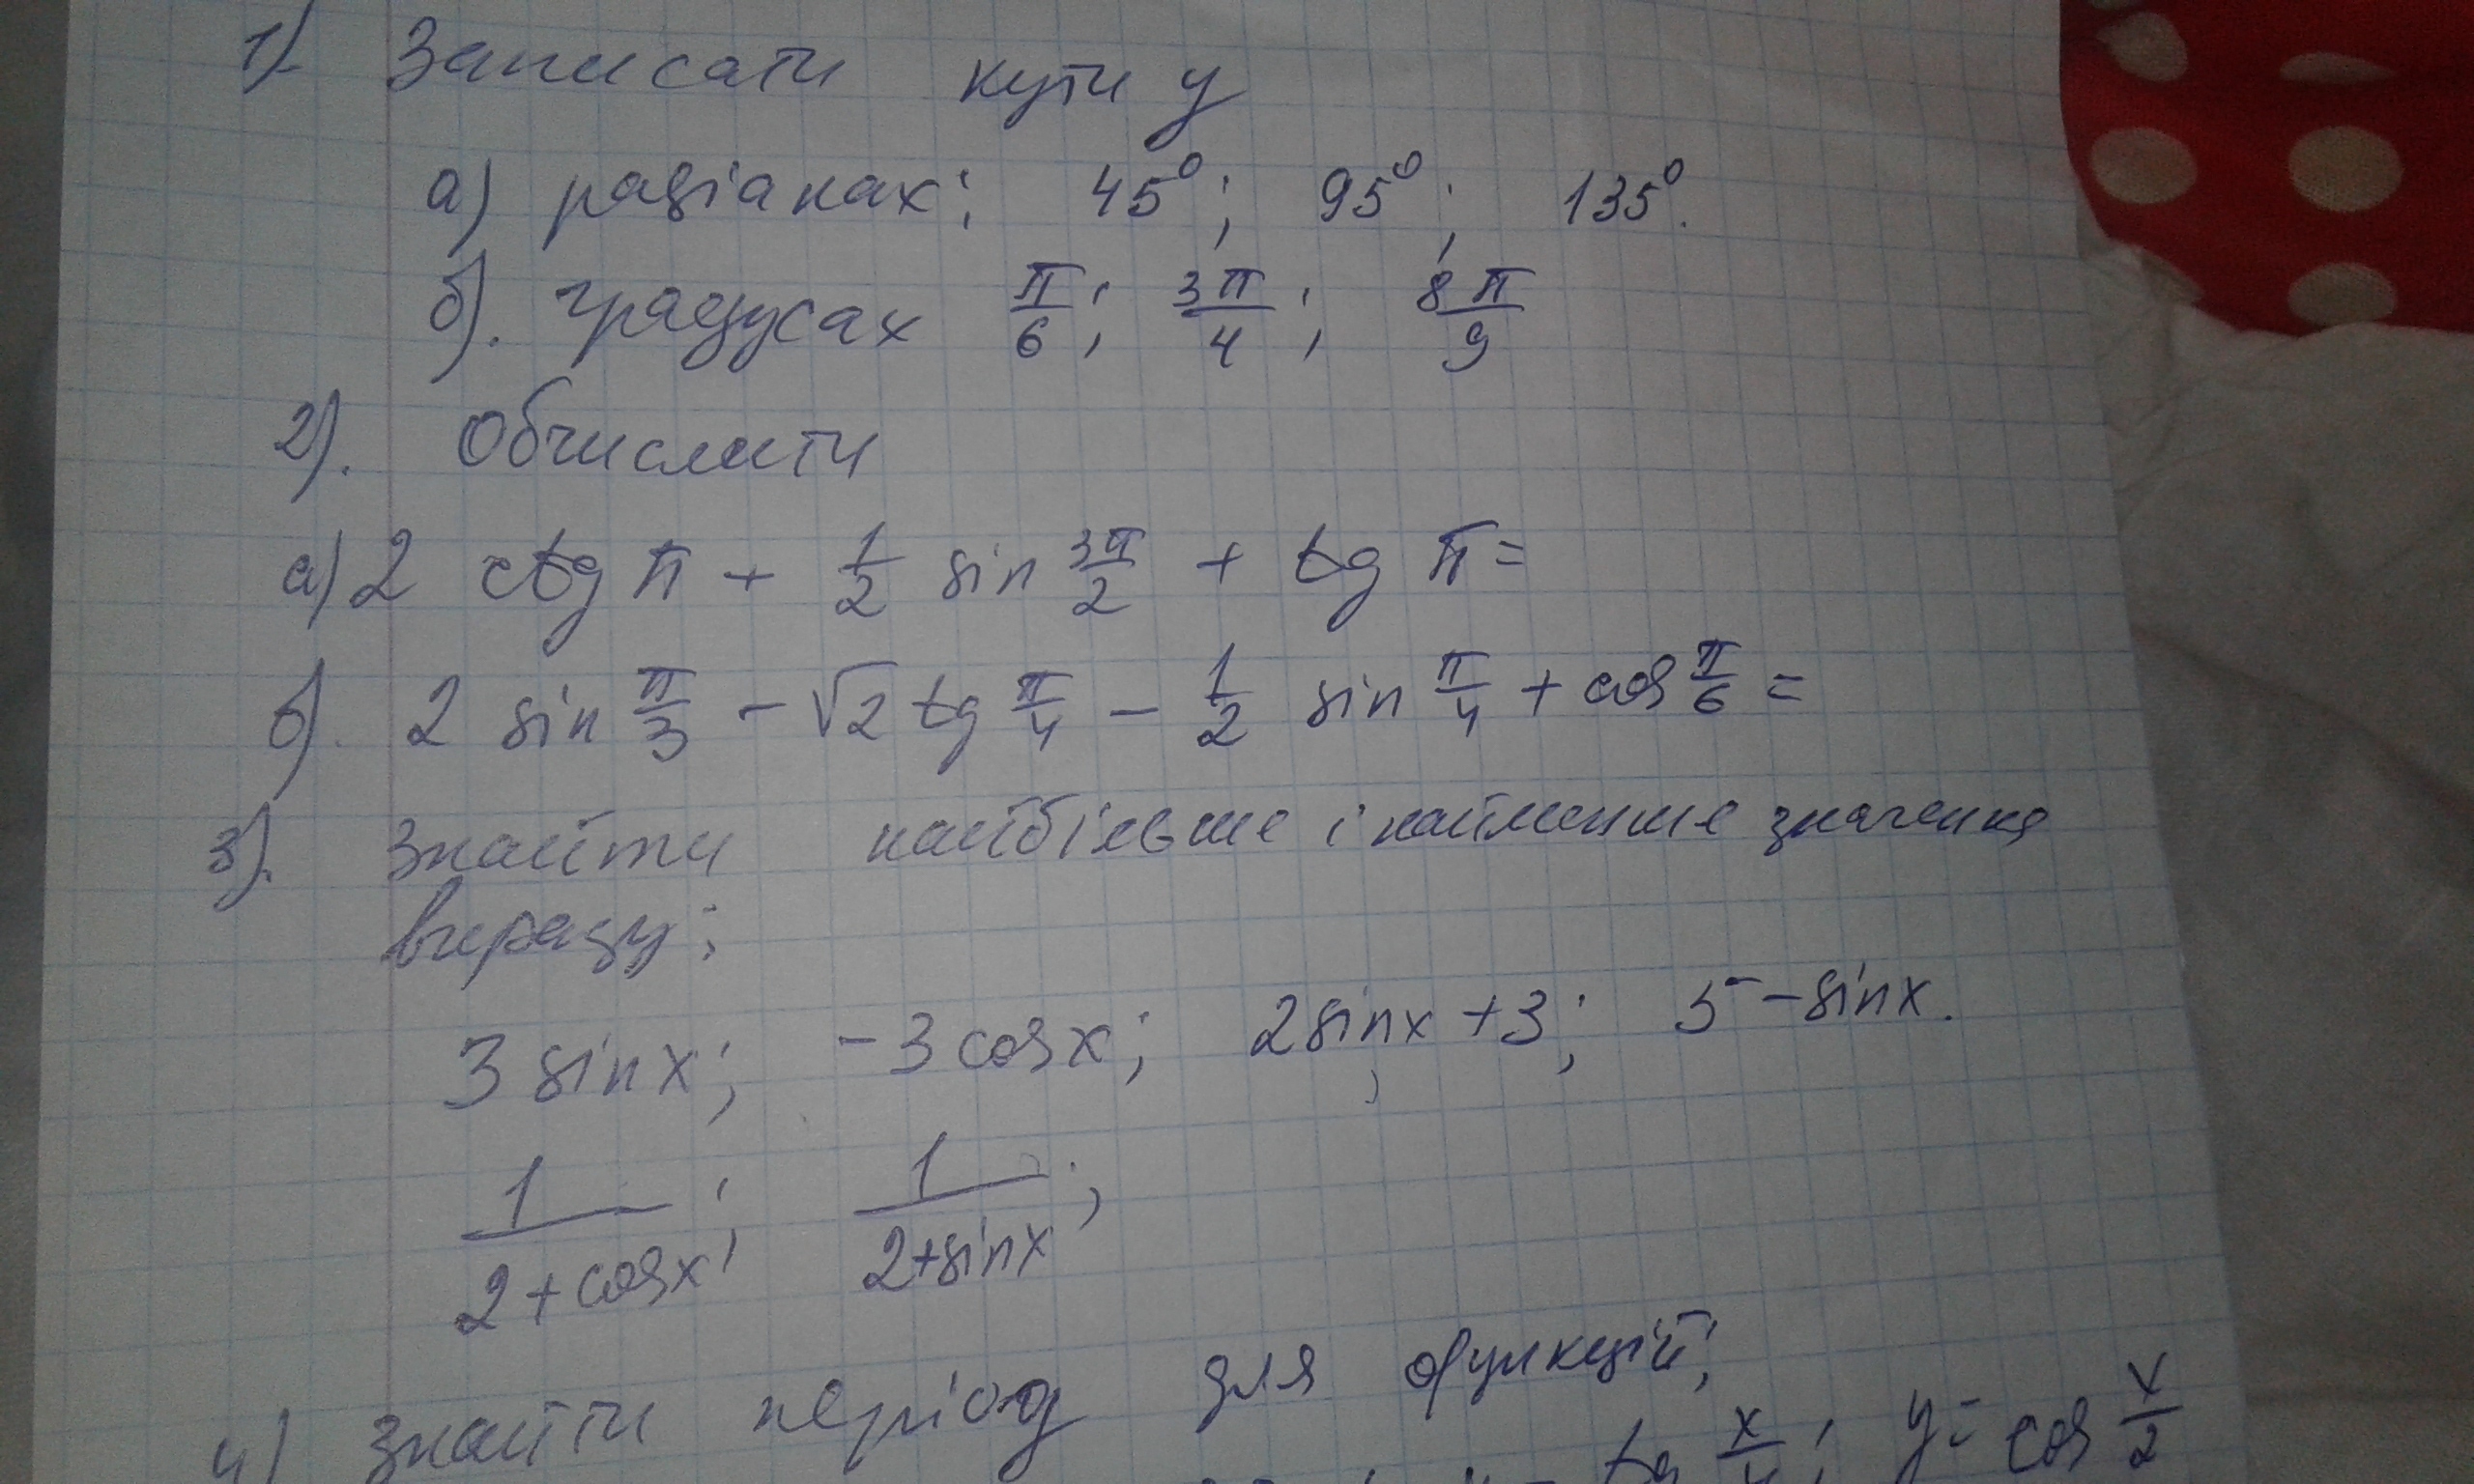 1). Записати кути у
а) радіанах: 45°; 95°; 135°.
б). градусах π/6; 3π/4; 8π/9
2). Обчислити
а) 2 ctg π + 1/2 sin 3π/2 + tg π =
б). 2 sin π/3 - √2 tg π/4 - 1/2 sin π/4 + cos π/6 =
3). Знайти найбільше і найменше значення
виразу:
3 sinx; -3 cosx; 2sinx + 3; 5 - sinx.
1/(2 + cosx); 1/(2+sinx);
4) знайти період для функцій;
tg x/4; y = cos x/2